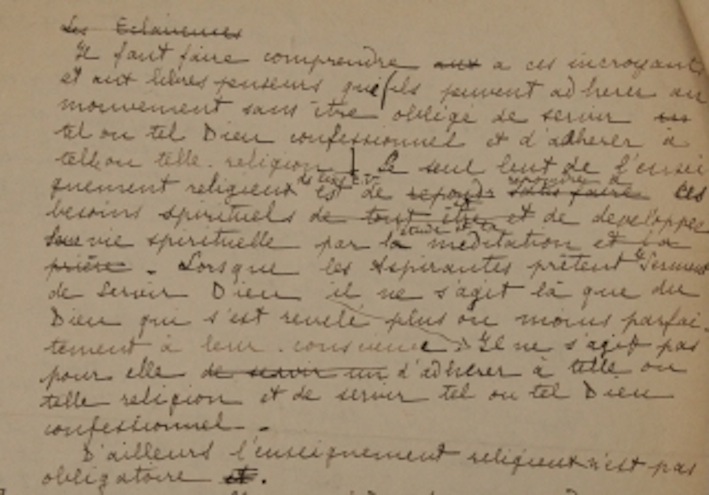 Les Eclaireuses
Il faut faire comprendre aux a ces incroyants
et aux libres penseurs qu'ils peuvent adherer au
mouvement sans être obligé de servir un
tel ou tel Dieu confessionnel et d'adherer à
telle ou telle religion. Le seul but de l'ensei
gnement religieux est de repondre satisfaire ces
besoins spirituels de tout être et de developper
vie spirituelle par la étude et la méditation et la
prière. Lorsque les Aspirantes prêtent Serment
de Servir Dieu il ne s'agit là que du
Dieu qui s'est revélé plus ou moins parfai-
tement à leur conscience. Il ne s'agit pas
pour elle de servir un d'adhérer à telle ou
telle religion et de servir tel ou tel Dieu
confessionnel.
D'ailleurs l'enseignement religieux n'est pas
obligatoire et.